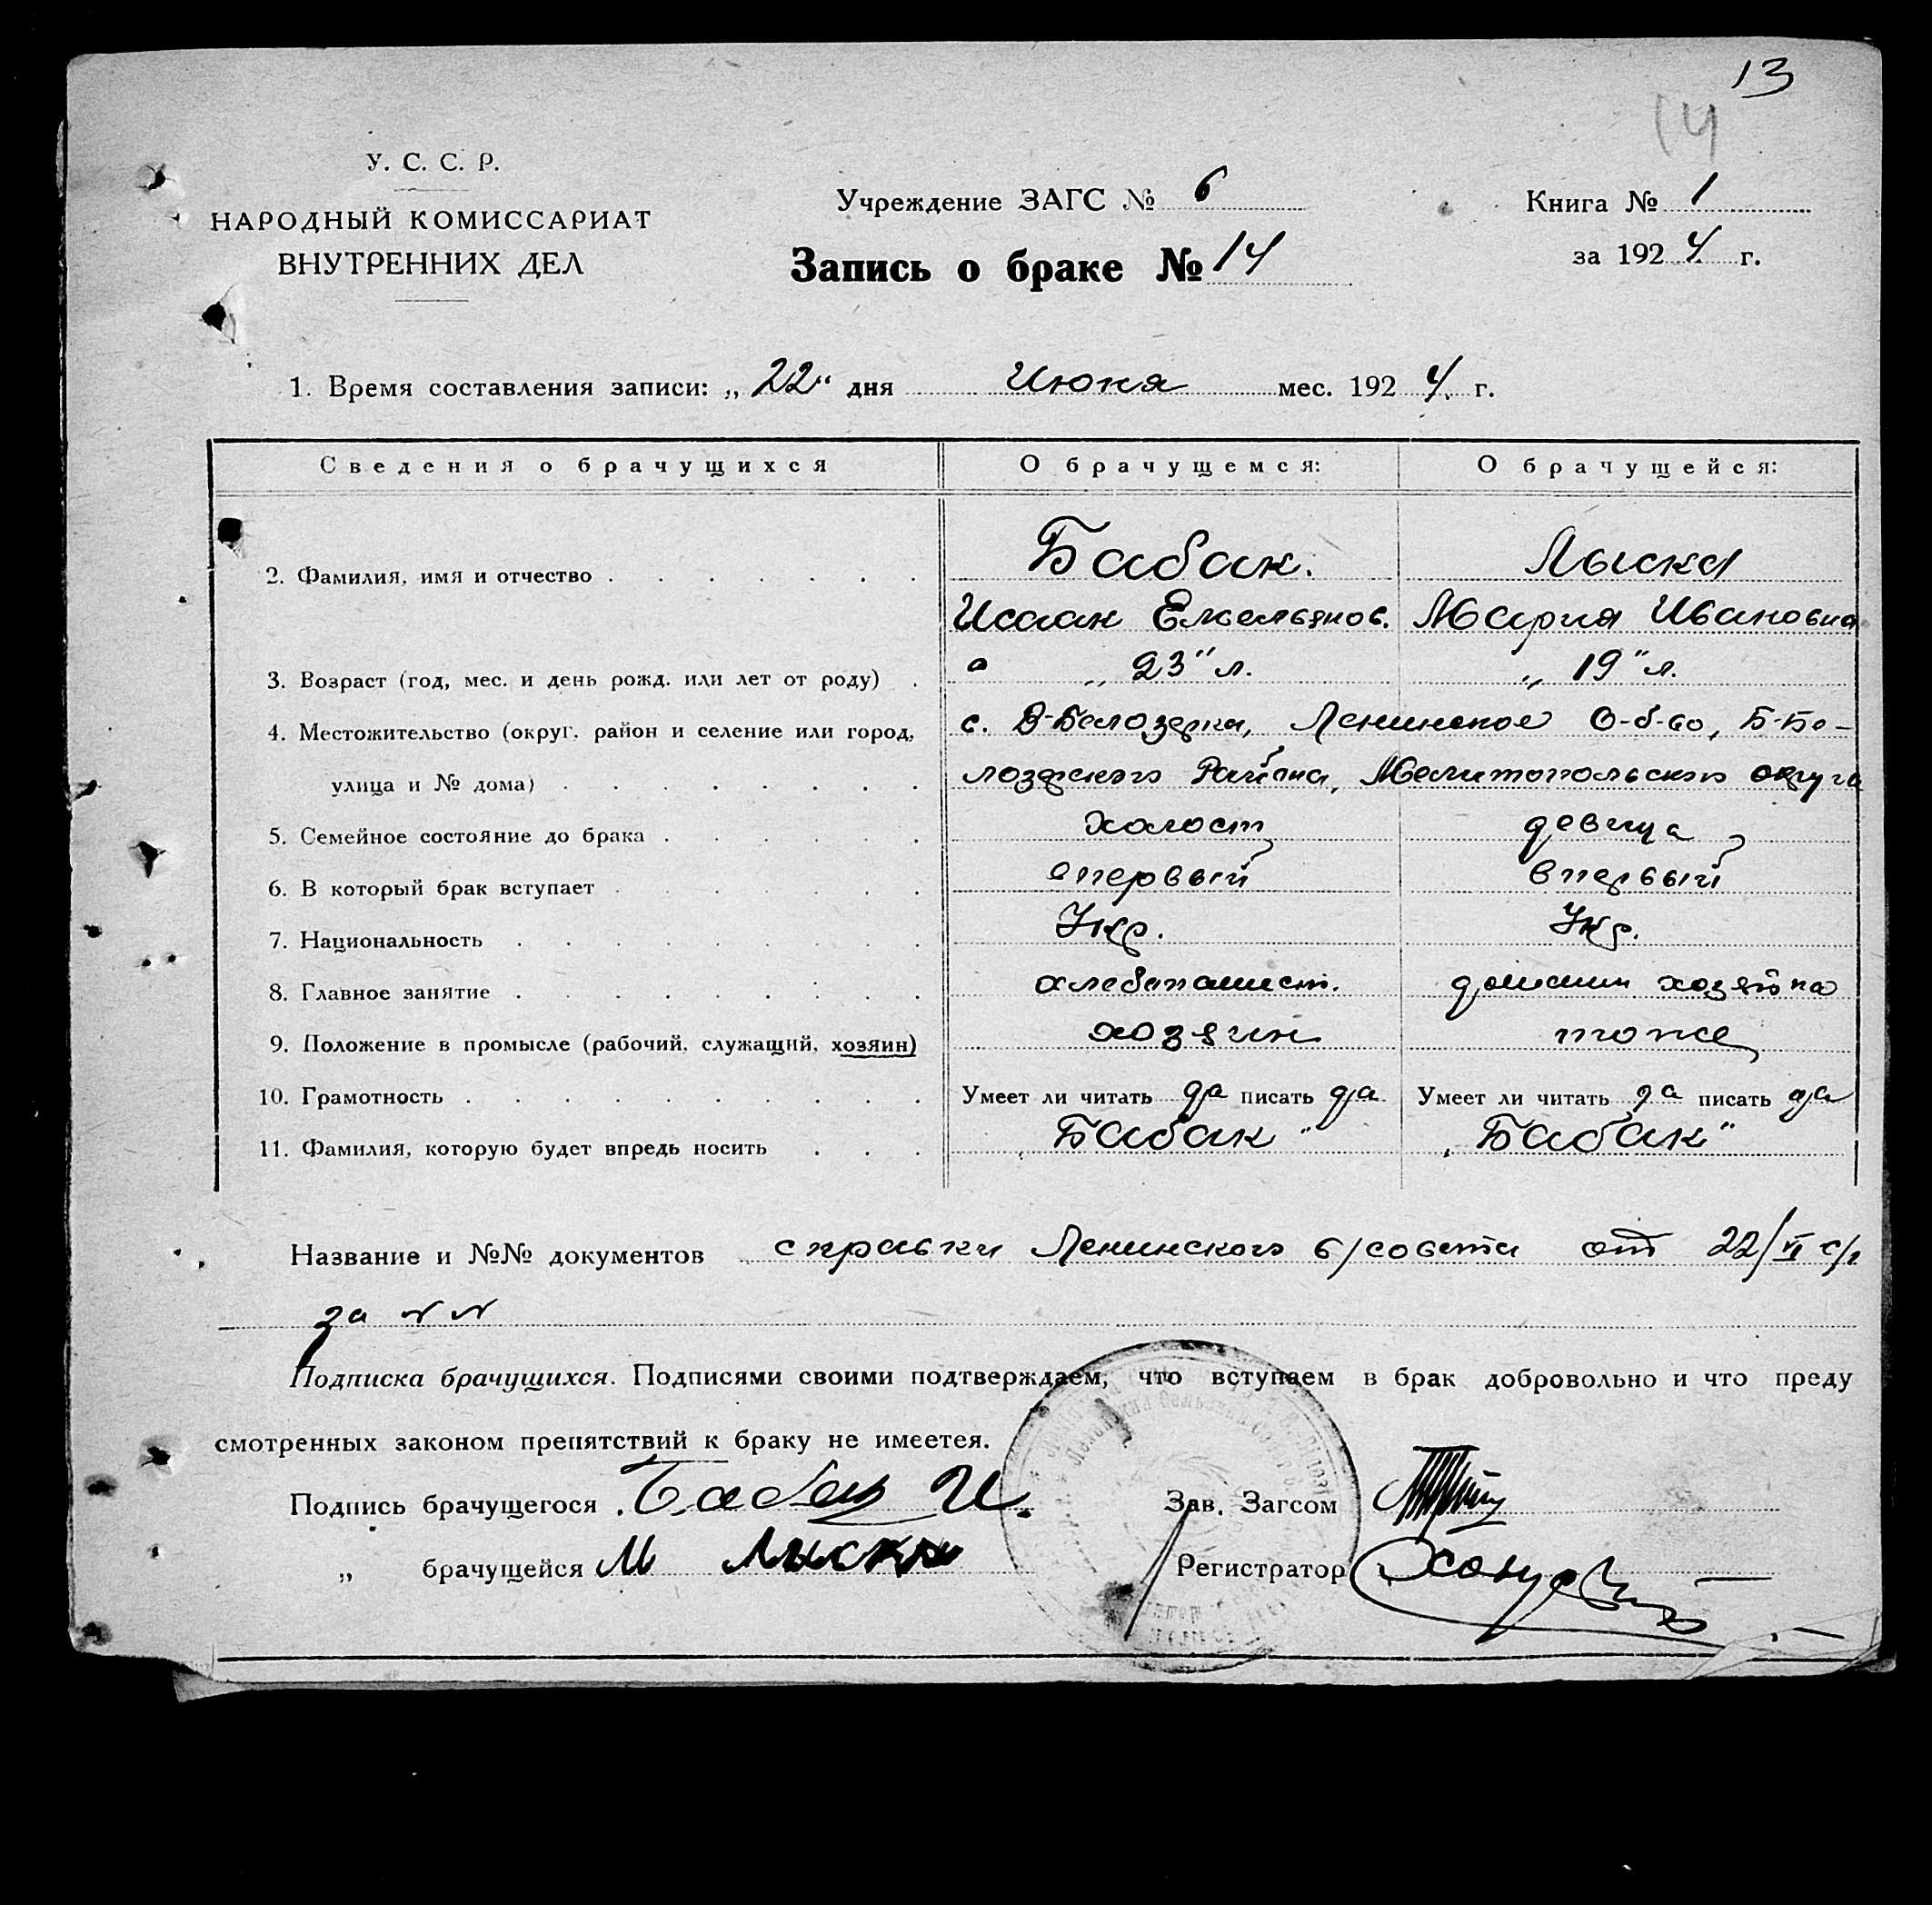 13
14
У. С. С. Р.
НАРОДНЫЙ КОМИССАРИАТ
ВНУТРЕННИХ ДЕЛ
Учреждение ЗАГС № 6
Запись о браке № 14
Книга № 1
за 1924 г.
1. Время составления записи: „22“ дня Июня мес. 1924. г.
Сведения о брачущихся О брачущемся: О брачущейся:
2. Фамилия, имя и отчество Бабак. Лыска
Исаак Емельянов. Мария Ивановна
3. Возраст (год, мес. и день рожд. или лет от роду) „23" л. „19" л.
4. Местожительство (округ, район и селение или город, с. В-Белозерка, Ленинское О-б-во, Б-Бе-
улица и № дома) лозерского Района, Мелитопольского округа
5. Семейное состояние до брака холост девица
6. В который брак вступает впервый впервый
7. Национальность Укр. Укр.
8. Главное занятие хлебопашест. домашн хозяйка
9. Положение в промысле (рабочий, служащий, хозяин) хозяин тоже
10. Грамотность Умеет ли читать да писать да Умеет ли читать да писать да
11. Фамилия, которую будет впредь носить „Бабак" „Бабак"
Название и №№ документов справки Ленинского с/совета от 22/VI с/г
за N N
Подписка брачущихся. Подписями своими подтверждаем, что вступаем в брак добровольно и что преду
смотренных законом препятствий к браку не имеетея.
Подпись брачущегося Бабак И. Зав. Загсом
„ брачущейся М Лыска Регистратор